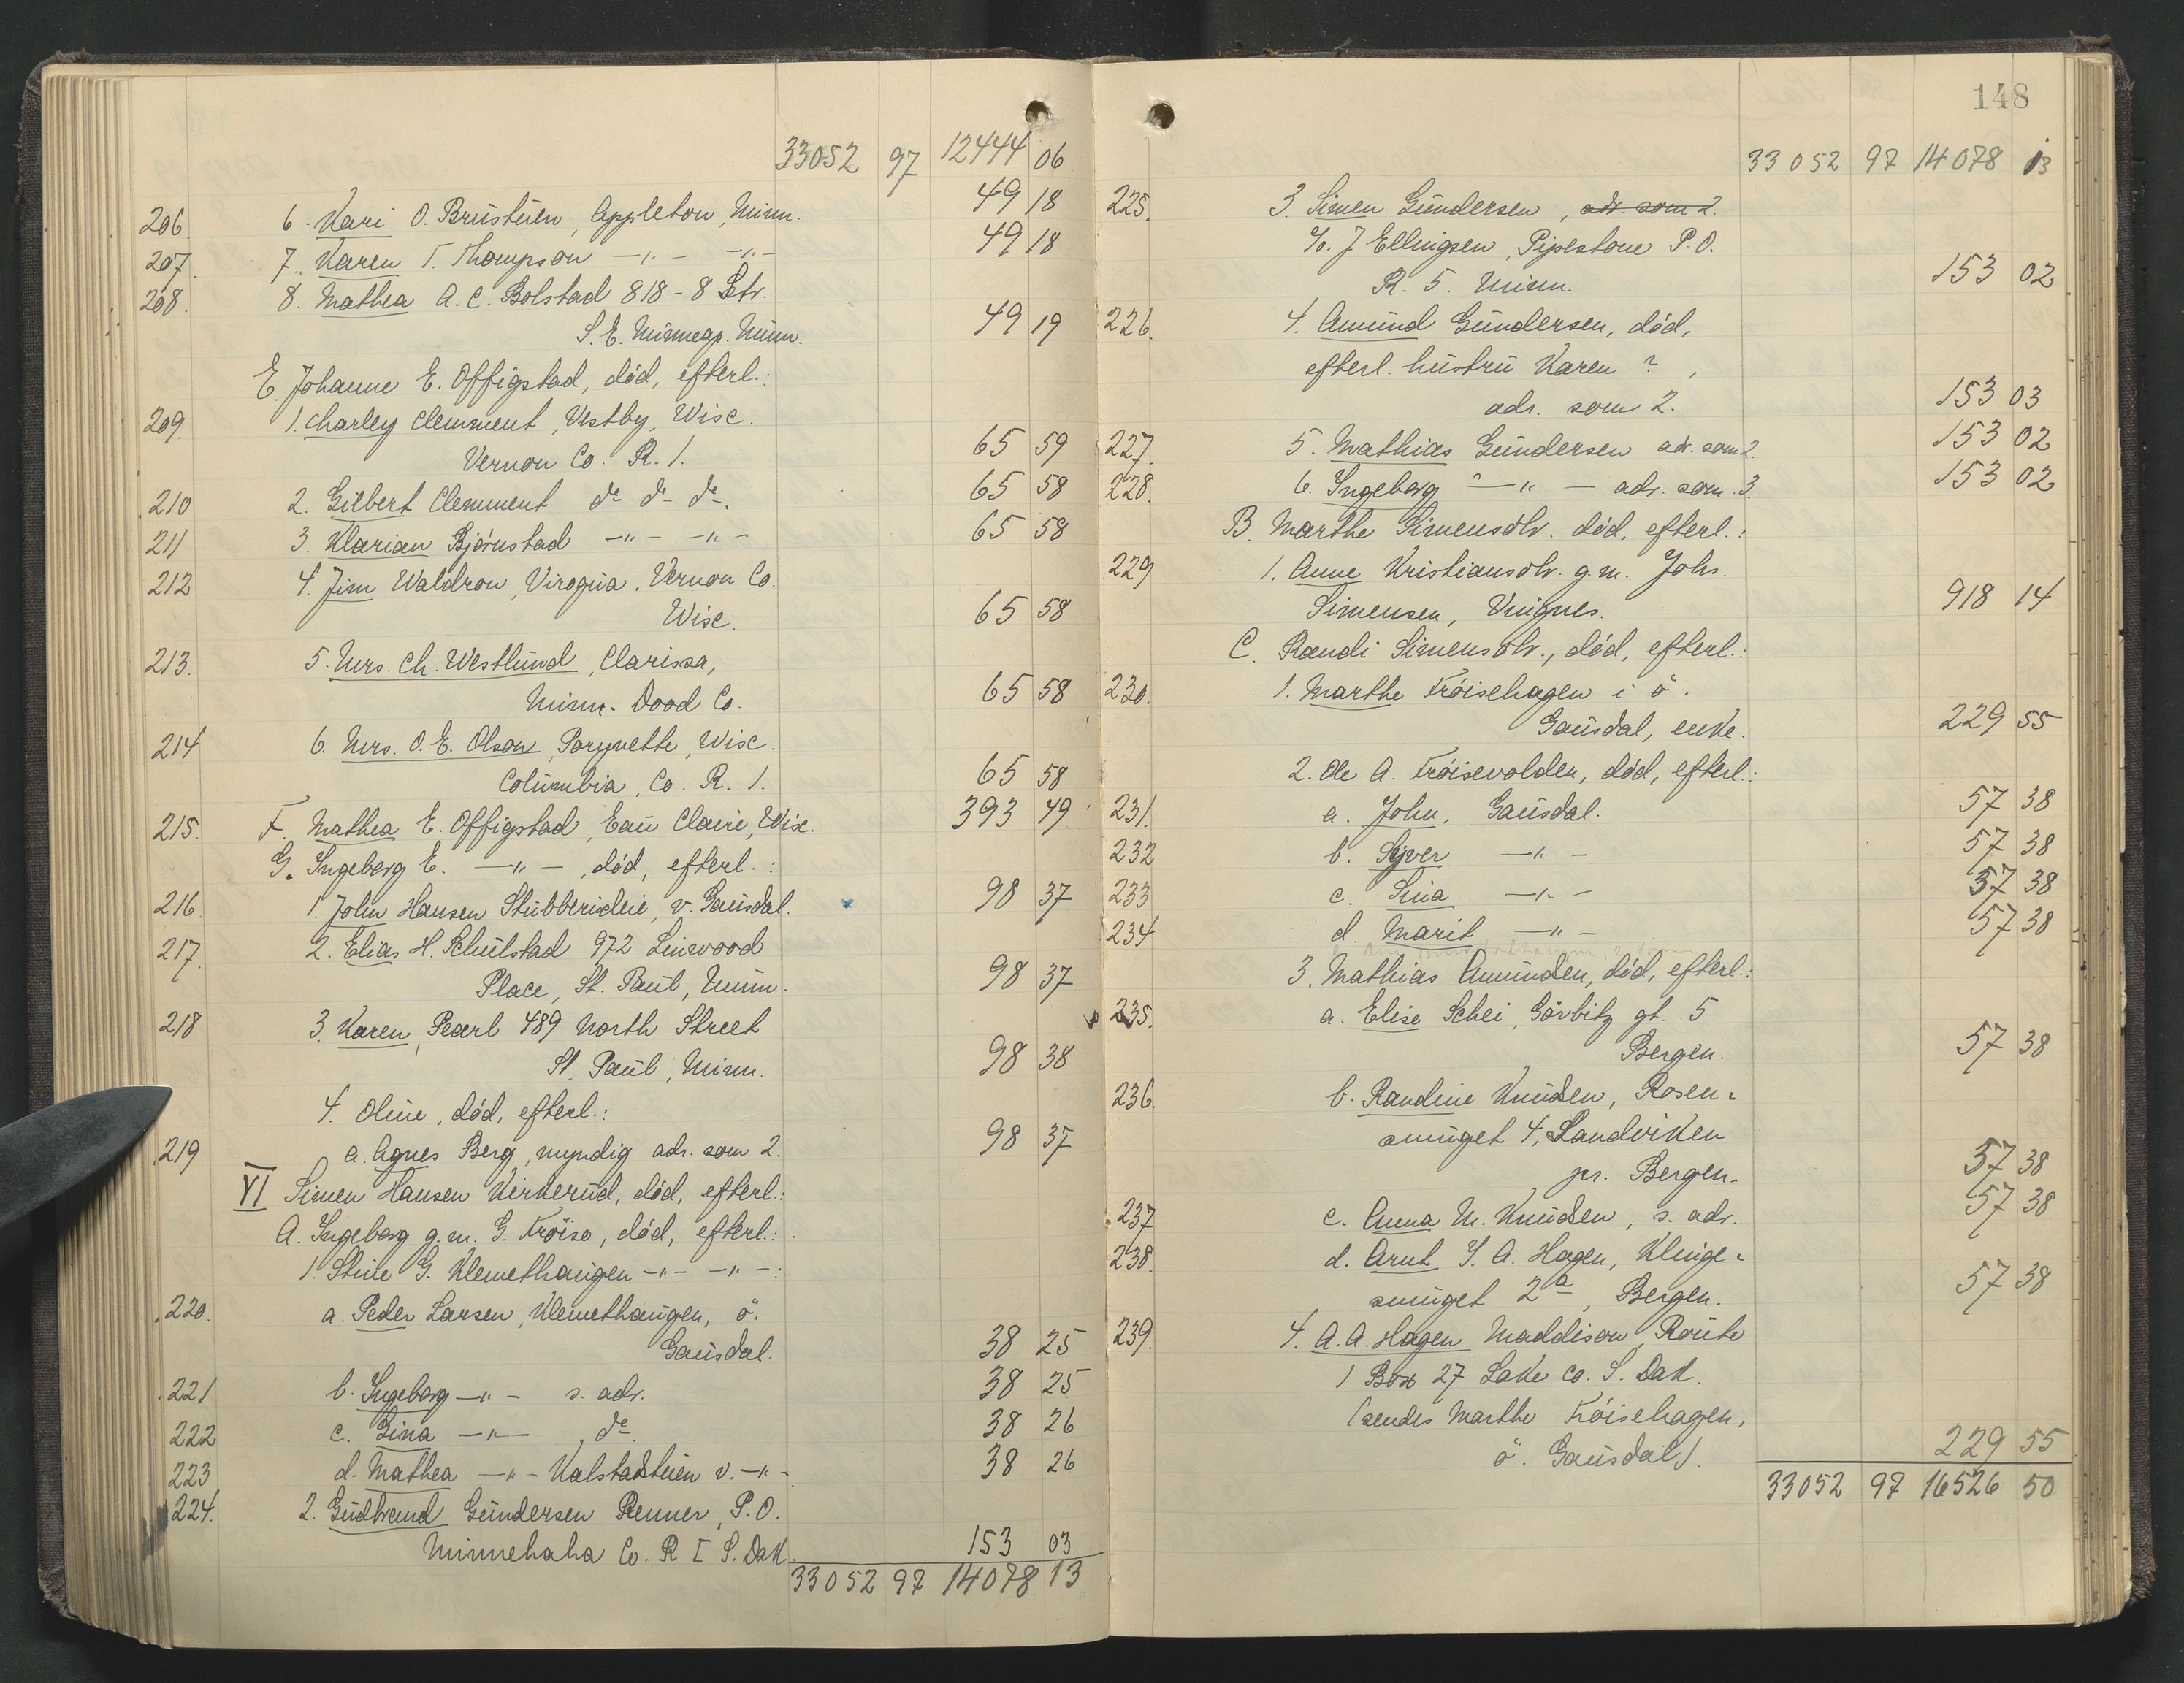 33052 97 12444 06
206. 6. Kari O. Brustuen, Appleton, Minn. 49 18
207. 7. Karen T. Thompson —〃— —〃— 49 18
208. 8. Mathea A. C. Bolstad 818 - 8 Str.
S. E. Minneap. Minn. 49 19
E. Johanne E. Offigstad, død, efterl.:
209. 1. Charley Clemment, Vestby, Wisc.
Vernon Co. R. 1. 65 59
210 2. Gilbert Clemment do do do. 65 58
211 3. Klarian Bjørnstad —〃— —〃— 65 58
212 4. Jim Waldron, Viroqua, Vernon Co.
Wisc. 65 58
213. 5. Mrs. Ch. Westlund, Clarissa,
Minn. Dood Co. 65 58
214 6. Mrs. O. E. Olson, Poynette, Wisc.
Columbia, Co. R. 1. 65 58
215. F. Mathea E. Offigstad, Eau Claire, Wisc. 393 49
G. Ingeborg E. —〃—, død, efterl.:
216. 1. John Hansen Stubberudeie, v. Gausdal. 98 37
217. 2. Elias H. Schulstad 972 Linwood
Place, St. Paul, Minn. 98 37
218 3. Karen, Pearl 489 North Street
St. Paul, Minn. 98 38
4. Oline, død, efterl.:
219 a. Agnes Berg, myndig adr. som 2. 98 37
VI Simen Hansen Kirkerud, død, efterl.:
A. Ingeborg g.m. G. Frøise, død, efterl.:
1. Stine G. Klemethaugen —〃— —〃—:
220. a. Peder Larsen, Klemethaugen, ö.
Gausdal. 38 25
221 b. Ingeborg —〃— s. adr. 38 25
222 c. Gina —〃— do 38 26
223 d. Mathea —〃— Kalstadstuen v. —〃— 38 26
224. 2. Gudbrand Gundersen Renner, P.O.
Minnehaha Co. R I S. Dak. 153 03
33052 97 14078 13
148
33052 97 14078 13
225. 3. Simen Gundersen, adr. som 2.
c/o. J Ellingsen, Pipestone P.O.
R. 5. Minn. 153 02
226. 4. Amund Gundersen, död,
efterl. hustru Karen ?,
adr. som 2. 153 03
227. 5. Mathias Gundersen adr. som 2. 153 02
228. 6. Ingeborg —〃— adr. som 3. 153 02
B. Marthe Simensdtr. död, efterl.:
229 1. Anne Kristiansdtr. g.m. Johs.
Simensen, Vingnes. 918 14
C. Randi Simensdtr., död, efterl.:
230. 1. Marthe Frøisehagen i ö.
Gausdal, enke. 229 55
2. Ole A. Frøisevolden, död, efterl.:
231. a. John, Gausdal. 57 38
232 b. Syver —〃— 57 38
233 c. Sina —〃— 57 38
234 d. Marit —〃— 57 38
3. Mathias Amunden, död, efterl.:
235. a. Elise Schei, Görbitz gt. 5
Bergen. 57 38
236. b. Randine Knudsen, Rosen-
smuget 4, Sandviken
pr. Bergen. 57 38
237 c. Anna M. Knudsen, s. adr. 57 38
238. d. Arnt S. A. Hagen, Klinge-
smuget 2a, Bergen. 57 38
239. 4. A. A. Hagen Maddison, Route
1 Box 27 Lake Co. S. Dak.
(sendes Marthe Frøisehagen,
ö. Gausdal). 229 55
33052 97 16526 50